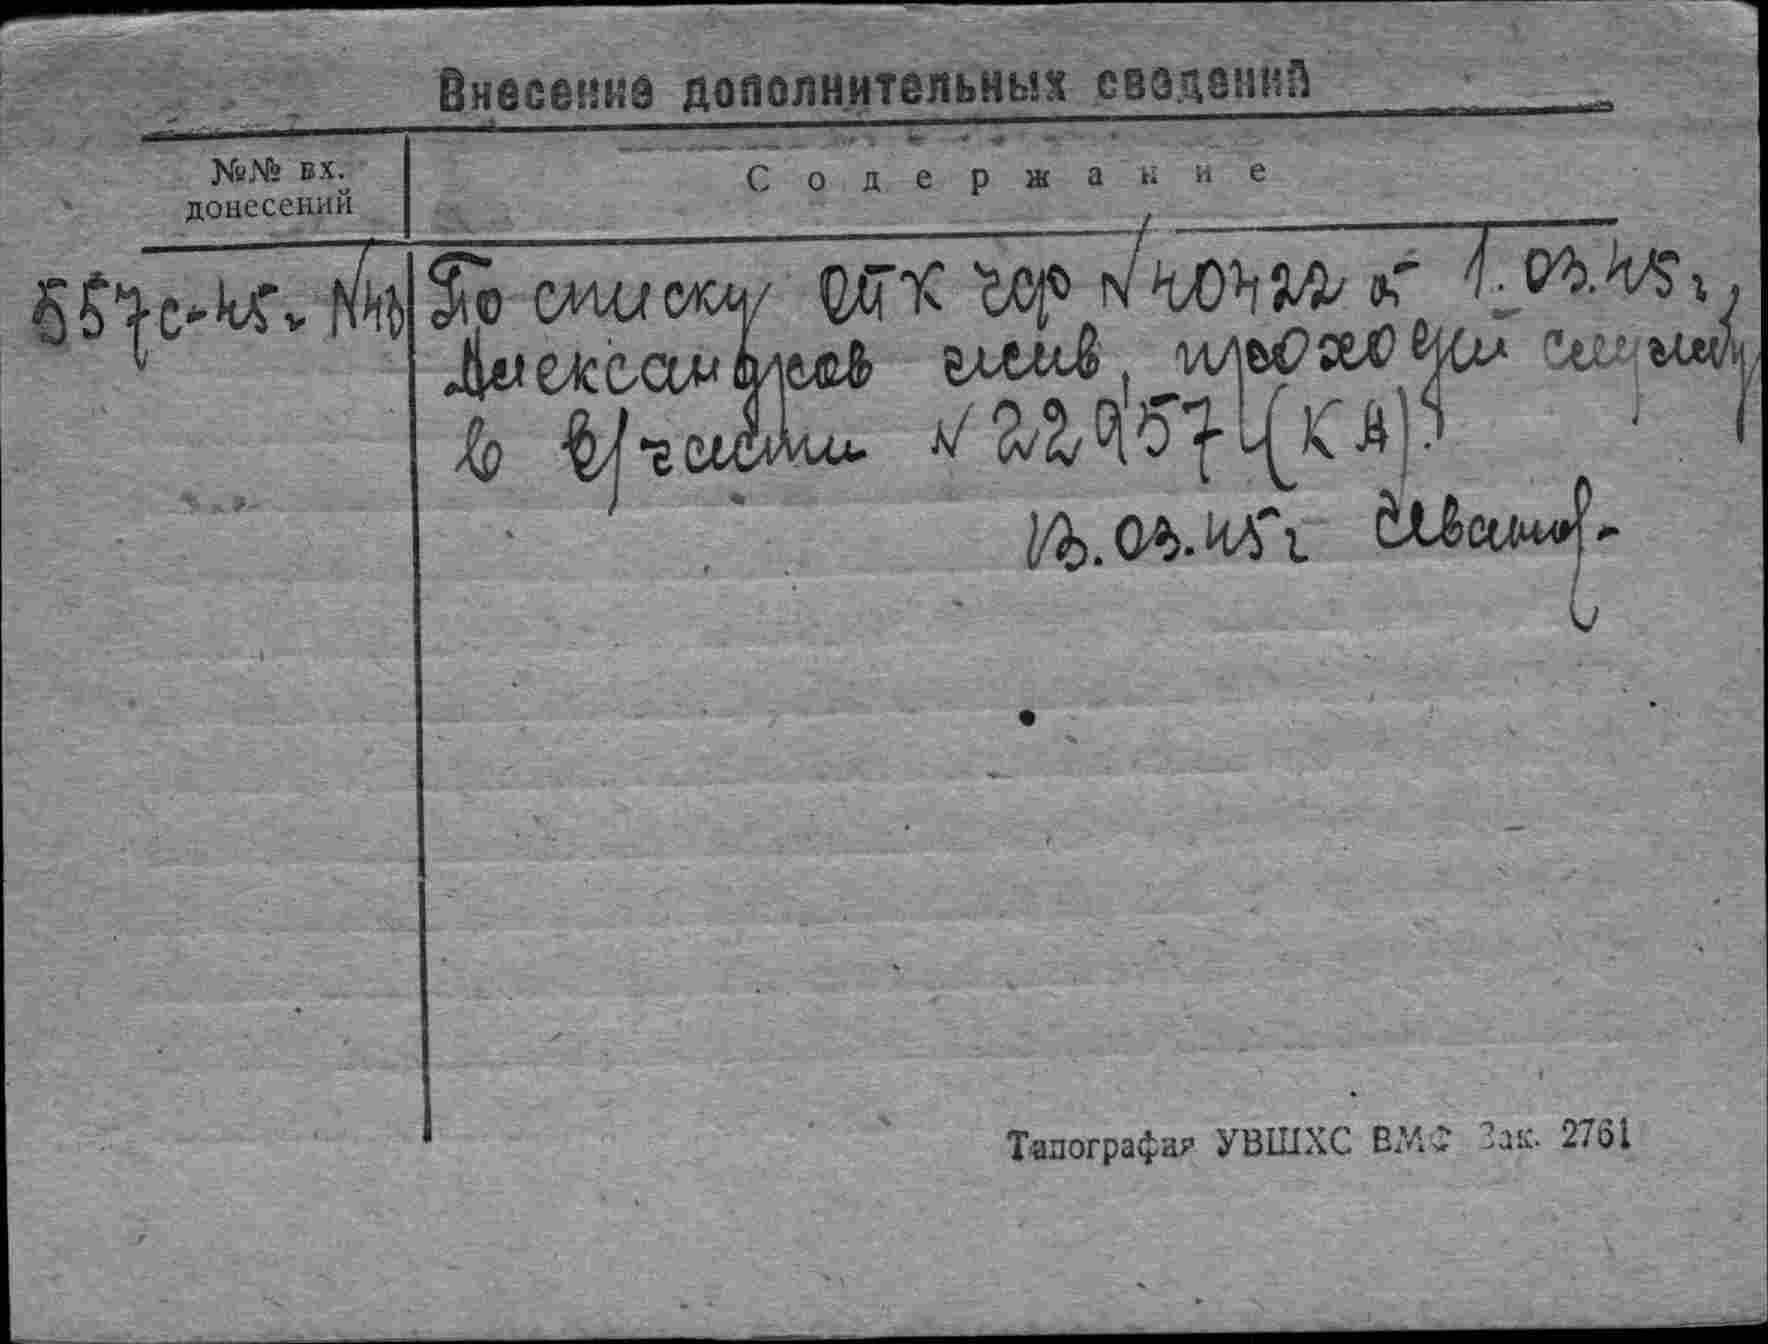 Внесение дополнительных сведений
№№ вх.
донесений
Содержание
557с-45г. №43
По списку ОПК ЧФ №40422 от 1.03.45г.,
Александров жив, проходил службу
в в/части №22957 (КА).
13.03.45г Иванов
Типография УВШХС ВМФ Зак. 2761